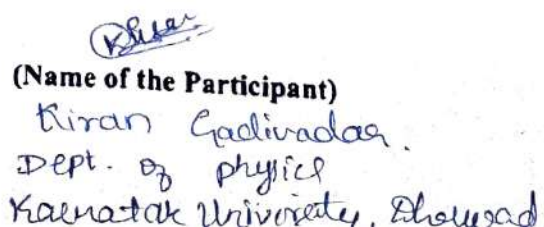 (Name of the Participant)
Kiran Gadivadar.
Dept. of physics
Karnatak University, Dharwad